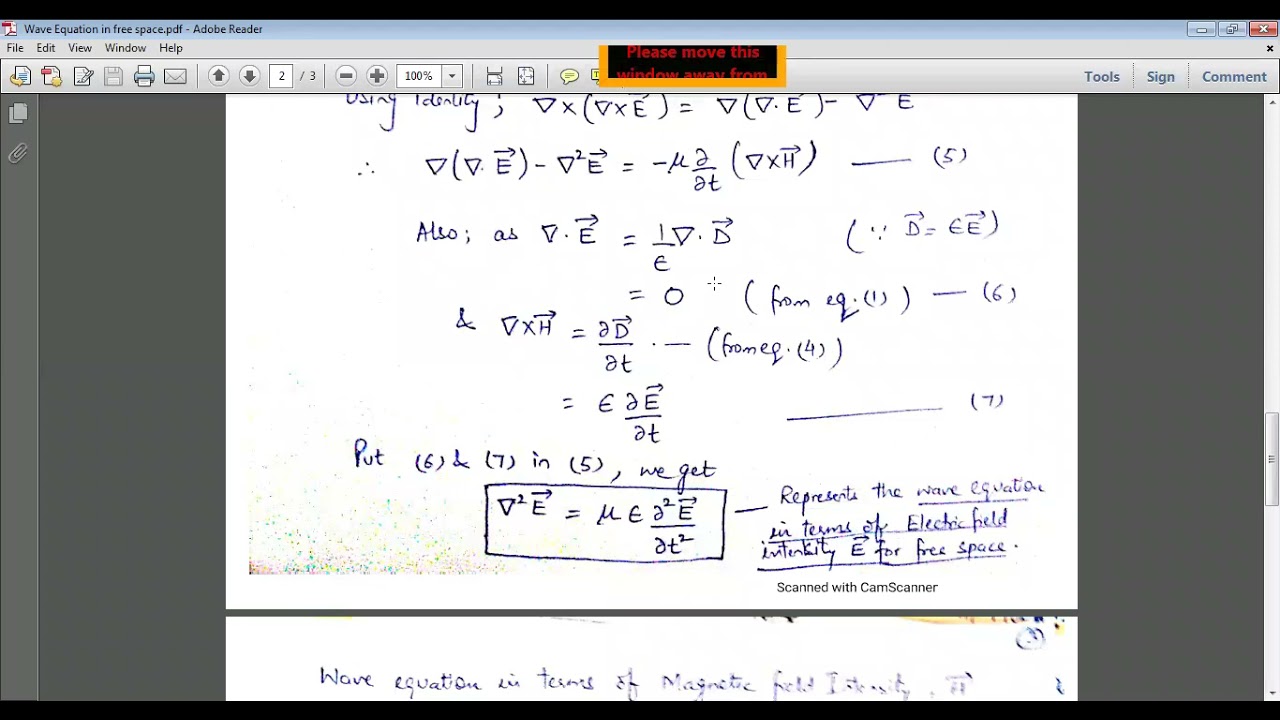 Wave Equation in free space.pdf - Adobe Reader
File Edit View Window Help
Please move this
window away from
2 / 3 100% Tools Sign Comment
Using Identity ; ∇×(∇×E⃗) = ∇(∇·E⃗) - ∇²E⃗
∴ ∇(∇·E⃗) - ∇²E⃗ = -μ ∂/∂t (∇×H⃗) — (5)
Also; as ∇·E⃗ = 1/ϵ ∇·D⃗ (∵ D⃗ = ϵE⃗)
= 0 (from eq.(1)) — (6)
& ∇×H⃗ = ∂D⃗/∂t · — (from eq.(4))
= ϵ ∂E⃗/∂t — (7)
Put (6) & (7) in (5), we get
∇²E⃗ = μϵ ∂²E⃗/∂t² — Represents the wave equation
in terms of Electric field
intensity E⃗ for free space.
Scanned with CamScanner
3
Wave equation in terms of Magnetic field Intensity, H⃗